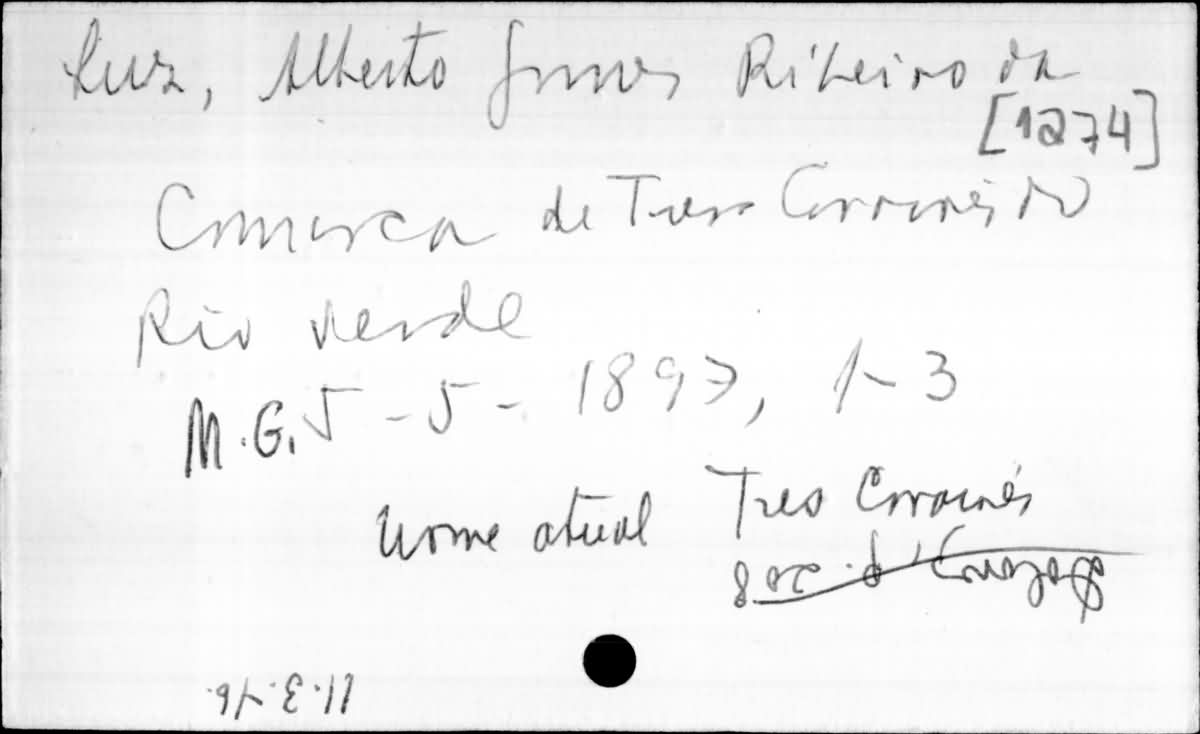 Luz, Alberto Gomes Ribeiro da
[1274]
Comarca de Tres Corações do
Rio Verde
M.G. 5-5-1897, 1-3
nome atual Tres Corações
11.3.76.